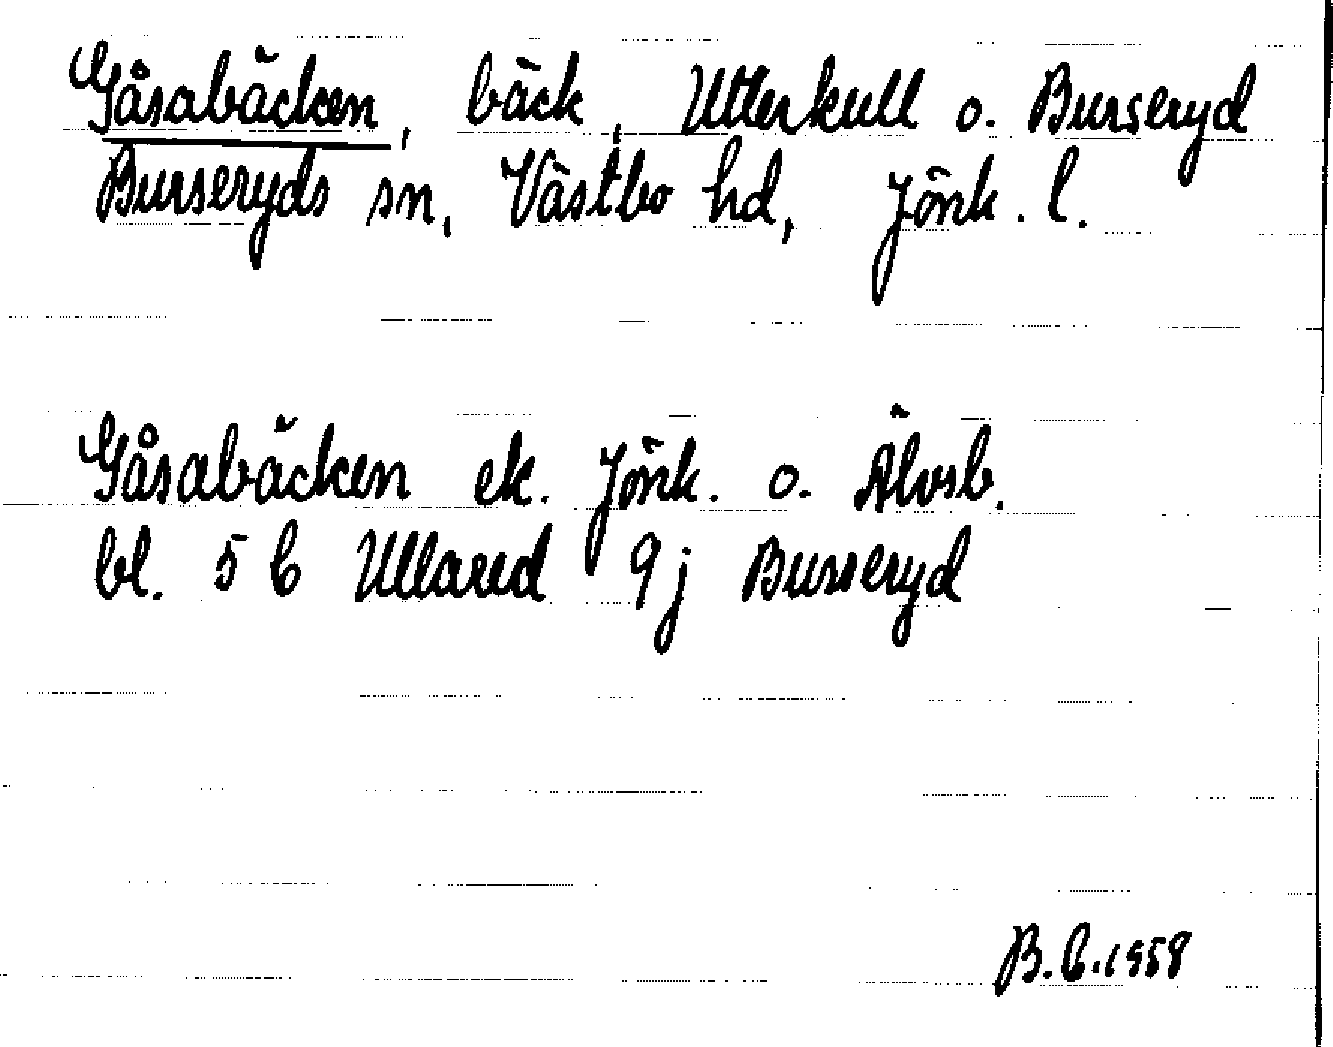 Gåsabäcken, bäck, Utterkull o. Burseryd
Burseryds sn, Västbo hd, Jönk. l.
Gåsabäcken ek. Jönk. o. Älvsb.
bl. 5 C Ullared 9j Burseryd
B.C. 1958